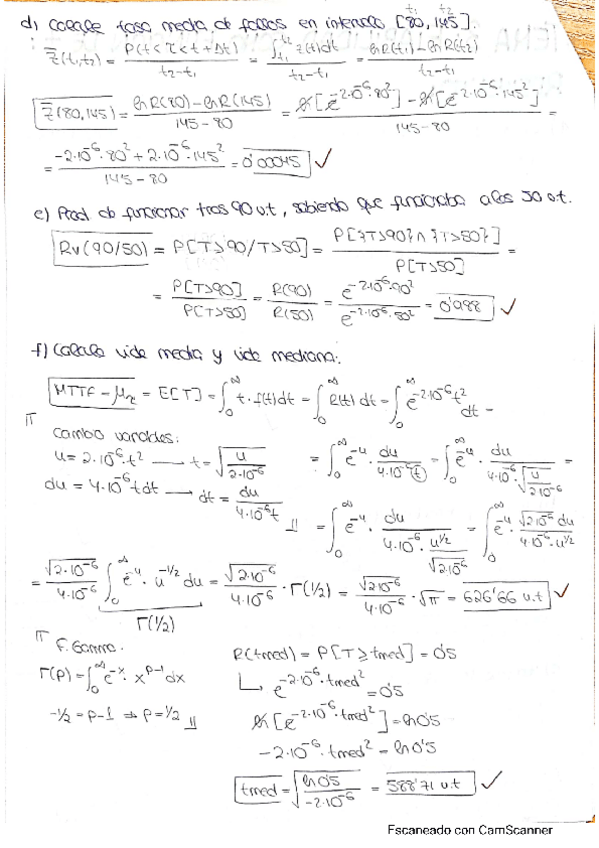 d) Calcule tasa media de fallos en intervalo [80, 145].
t₁ t₂
z̄(t₁,t₂) = P(t < τ < t + Δt) / (t₂-t₁) = ∫_{t₁}^{t₂} z(t)dt / (t₂-t₁) = (ln R(t₁) - ln R(t₂)) / (t₂-t₁)
z̄(80,145) = (ln R(80) - ln R(145)) / (145-80) = (ln[e^{-2·10^{-6}·80²}] - ln[e^{-2·10^{-6}·145²}]) / (145-80) =
= (-2·10^{-6}·80² + 2·10^{-6}·145²) / (145-80) = 0'00045 ✓
e) Prob de funcionar tras 90 u.t, sabiendo que funcionaba a los 50 u.t.
Rv(90/50) = P[T>90/T>50] = P[{T>90}∩{T>50}] / P[T>50] =
= P[T>90] / P[T>50] = R(90) / R(50) = e^{-2·10^{-6}·90²} / e^{-2·10^{-6}·50²} = 0'988 ✓
f) Calcule vida media y vida mediana:
MTTF = μ = E[T] = ∫₀^∞ t·f(t)dt = ∫₀^∞ R(t)dt = ∫₀^∞ e^{-2·10^{-6}t²} dt =
Cambio variables:
u = 2·10^{-6}·t² → t = √(u / 2·10^{-6})
du = 4·10^{-6}tdt → dt = du / 4·10^{-6}t
= ∫₀^∞ e^{-u}· du / 4·10^{-6}(t) = ∫₀^∞ e^{-u}· du / (4·10^{-6}·√(u / 2·10^{-6})) =
= ∫₀^∞ e^{-u}· du / (4·10^{-6}· u^{1/2} / √(2·10^{-6})) = ∫₀^∞ e^{-u}· √(2·10^{-6}) du / (4·10^{-6}·u^{1/2})
= √(2·10^{-6}) / 4·10^{-6} ∫₀^∞ e^{-u}·u^{-1/2} du = √(2·10^{-6}) / 4·10^{-6} · Γ(1/2) = √(2·10^{-6}) / 4·10^{-6} · √π = 626'66 u.t ✓
Γ(1/2)
F. Gamma.
Γ(p) = ∫₀^∞ e^{-x}· x^{p-1}dx
-1/2 = p-1 ⇒ p = 1/2
R(tmed) = P[T ≥ tmed] = 0'5
e^{-2·10^{-6}·tmed²} = 0'5
ln[e^{-2·10^{-6}·tmed²}] = ln 0'5
-2·10^{-6}·tmed² = ln 0'5
tmed = √(ln 0'5 / -2·10^{-6}) = 588'71 u.t ✓
Escaneado con CamScanner